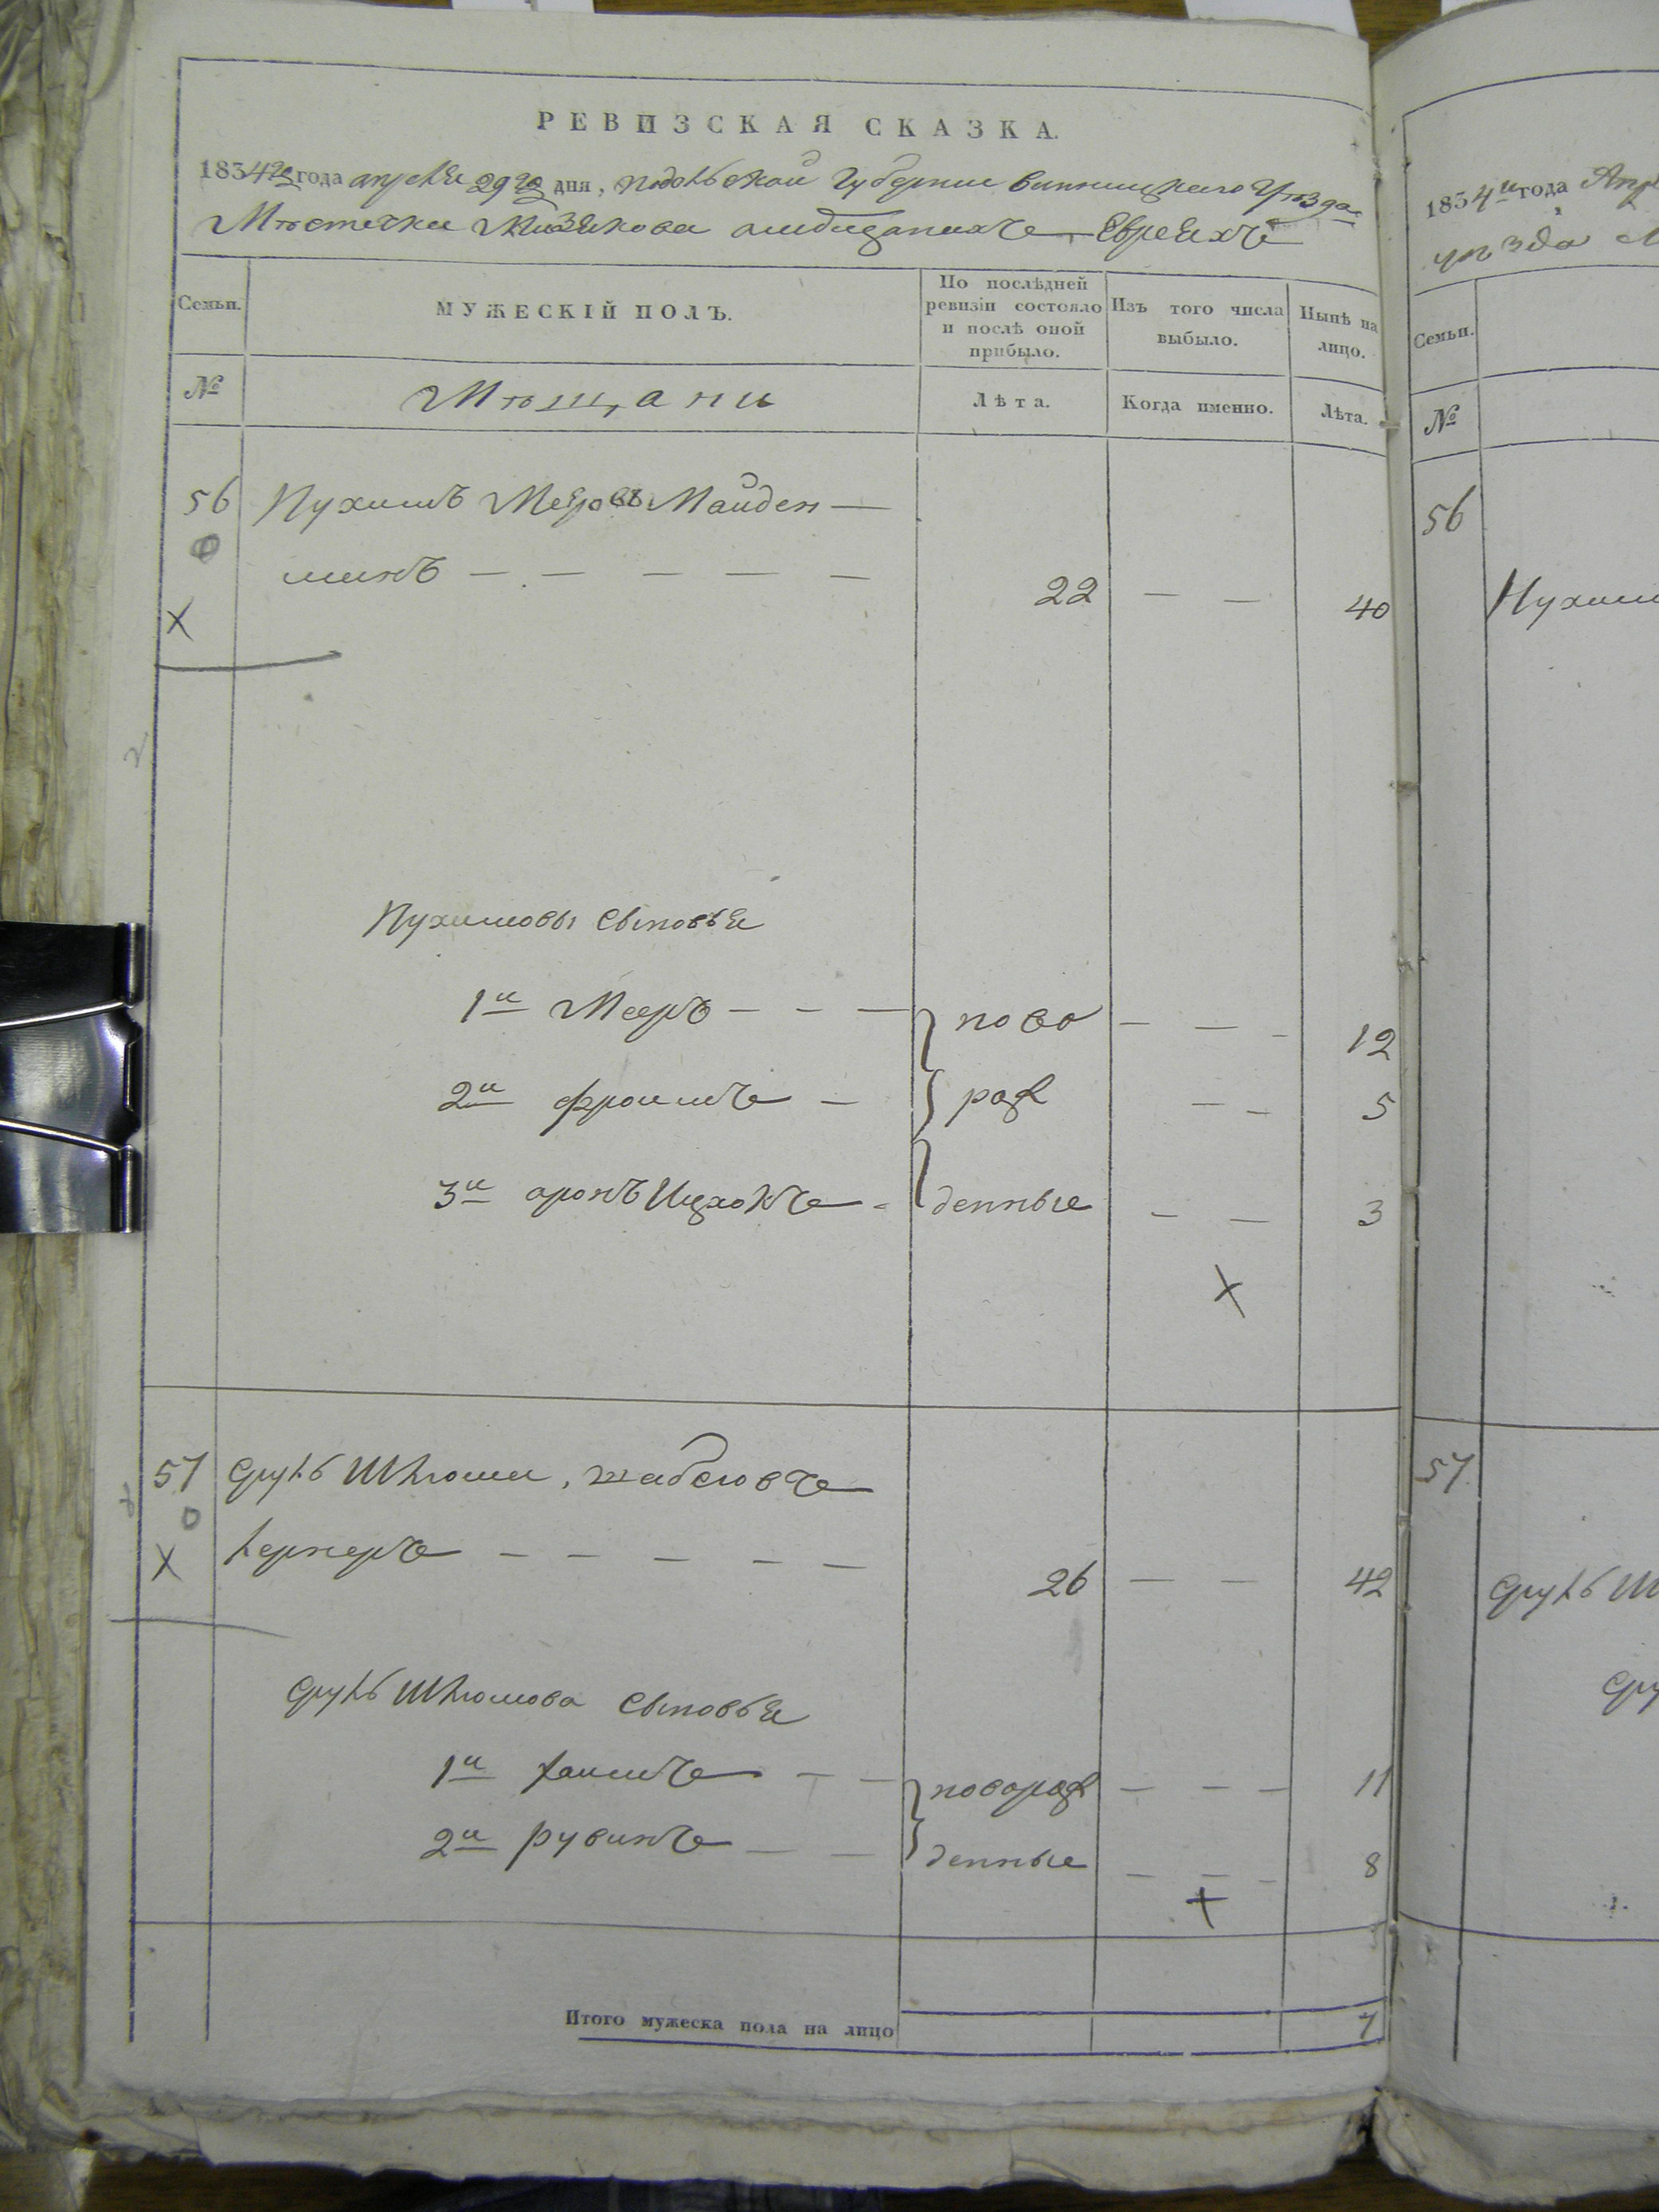 РЕВИЗСКАЯ СКАЗКА.
1834го года апреля 29го дня, Подольской Губернии Винницкого Уѣзда
Мѣстечка Мизякова о мещанахъ Евреяхъ
Семьи.
МУЖЕСКІЙ ПОЛЪ.
По послѣдней ревизіи состояло и послѣ оной прибыло.
Изъ того числа выбыло.
Нынѣ на лицо.
№
Мѣщани
Лѣта.
Когда именно.
Лѣта.
56 Нухимъ Меровъ Майден —
шинъ — — — — — 22 — — 40
Нухимовы сыновья
1й Мееръ — — — ново — — - 12
2й Фроимъ — рож — - 5
3й Аронъ Ицхокъ - денные — — 3
57 Сруль Шлюма Шабсовъ
Лернеръ — — — — — 26 — — 42
Сруль Шлюмова сыновья
1й Хаимъ — — новорож — — — 11
2й Рувинъ — — денные — — - 8
Итого мужеска пола на лицо 7
1834й года Апр
уѣзда М
Семьи.
№
56
Нухим
57
Сруль Ш
Сру